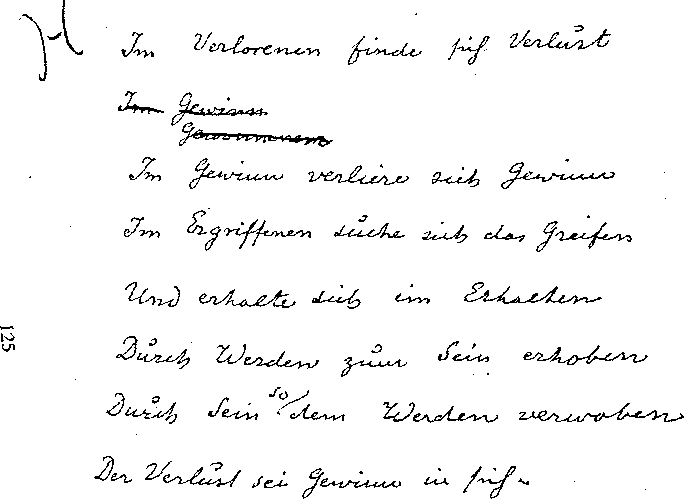 Im Verlorenen finde sich Verlust
Im Gewinn
Gewonnenen
Im Gewinn verliere sich Gewinn
Im Ergriffenen suche sich das Greifen
Und erhalte sich im Erhalten
Durch Werden zum Sein erhoben
Durch Sein so dem Werden verwoben
Der Verlust sei Gewinn in sich.
125